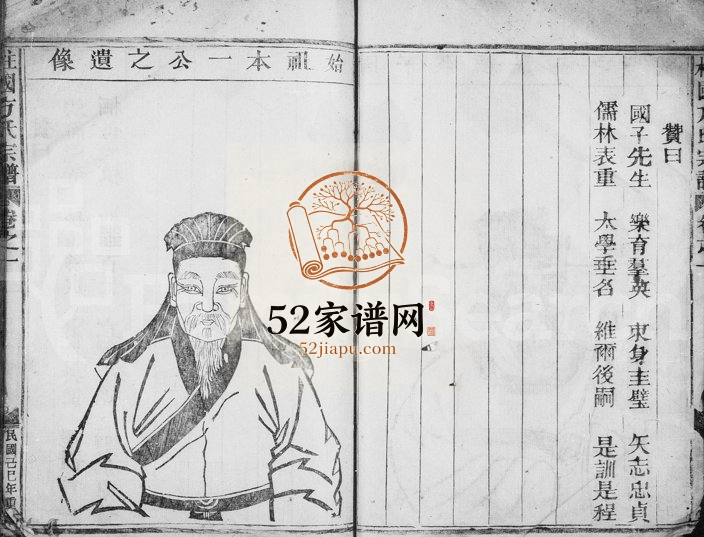 始祖本一公之遺像
柱國方氏宗譜
卷之一
民國己巳年重
贊曰
國子先生 樂育羣英 束身圭璧 矢志忠貞
儒林表重 太學垂名 維爾後嗣 是訓是程
52家谱网
52jiapu.com